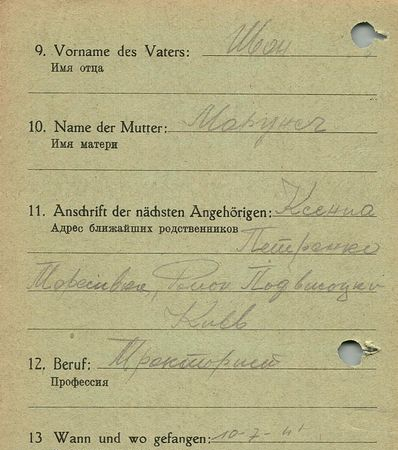 9. Vorname des Vaters: Иван
Имя отца
10. Name der Mutter:
Имя матери
11. Anschrift der nächsten Angehörigen: Ксения
Адрес ближайших родственников
Петренко
Киев
12. Beruf: Тракторист
Профессия
13 Wann und wo gefangen: 10-7-41